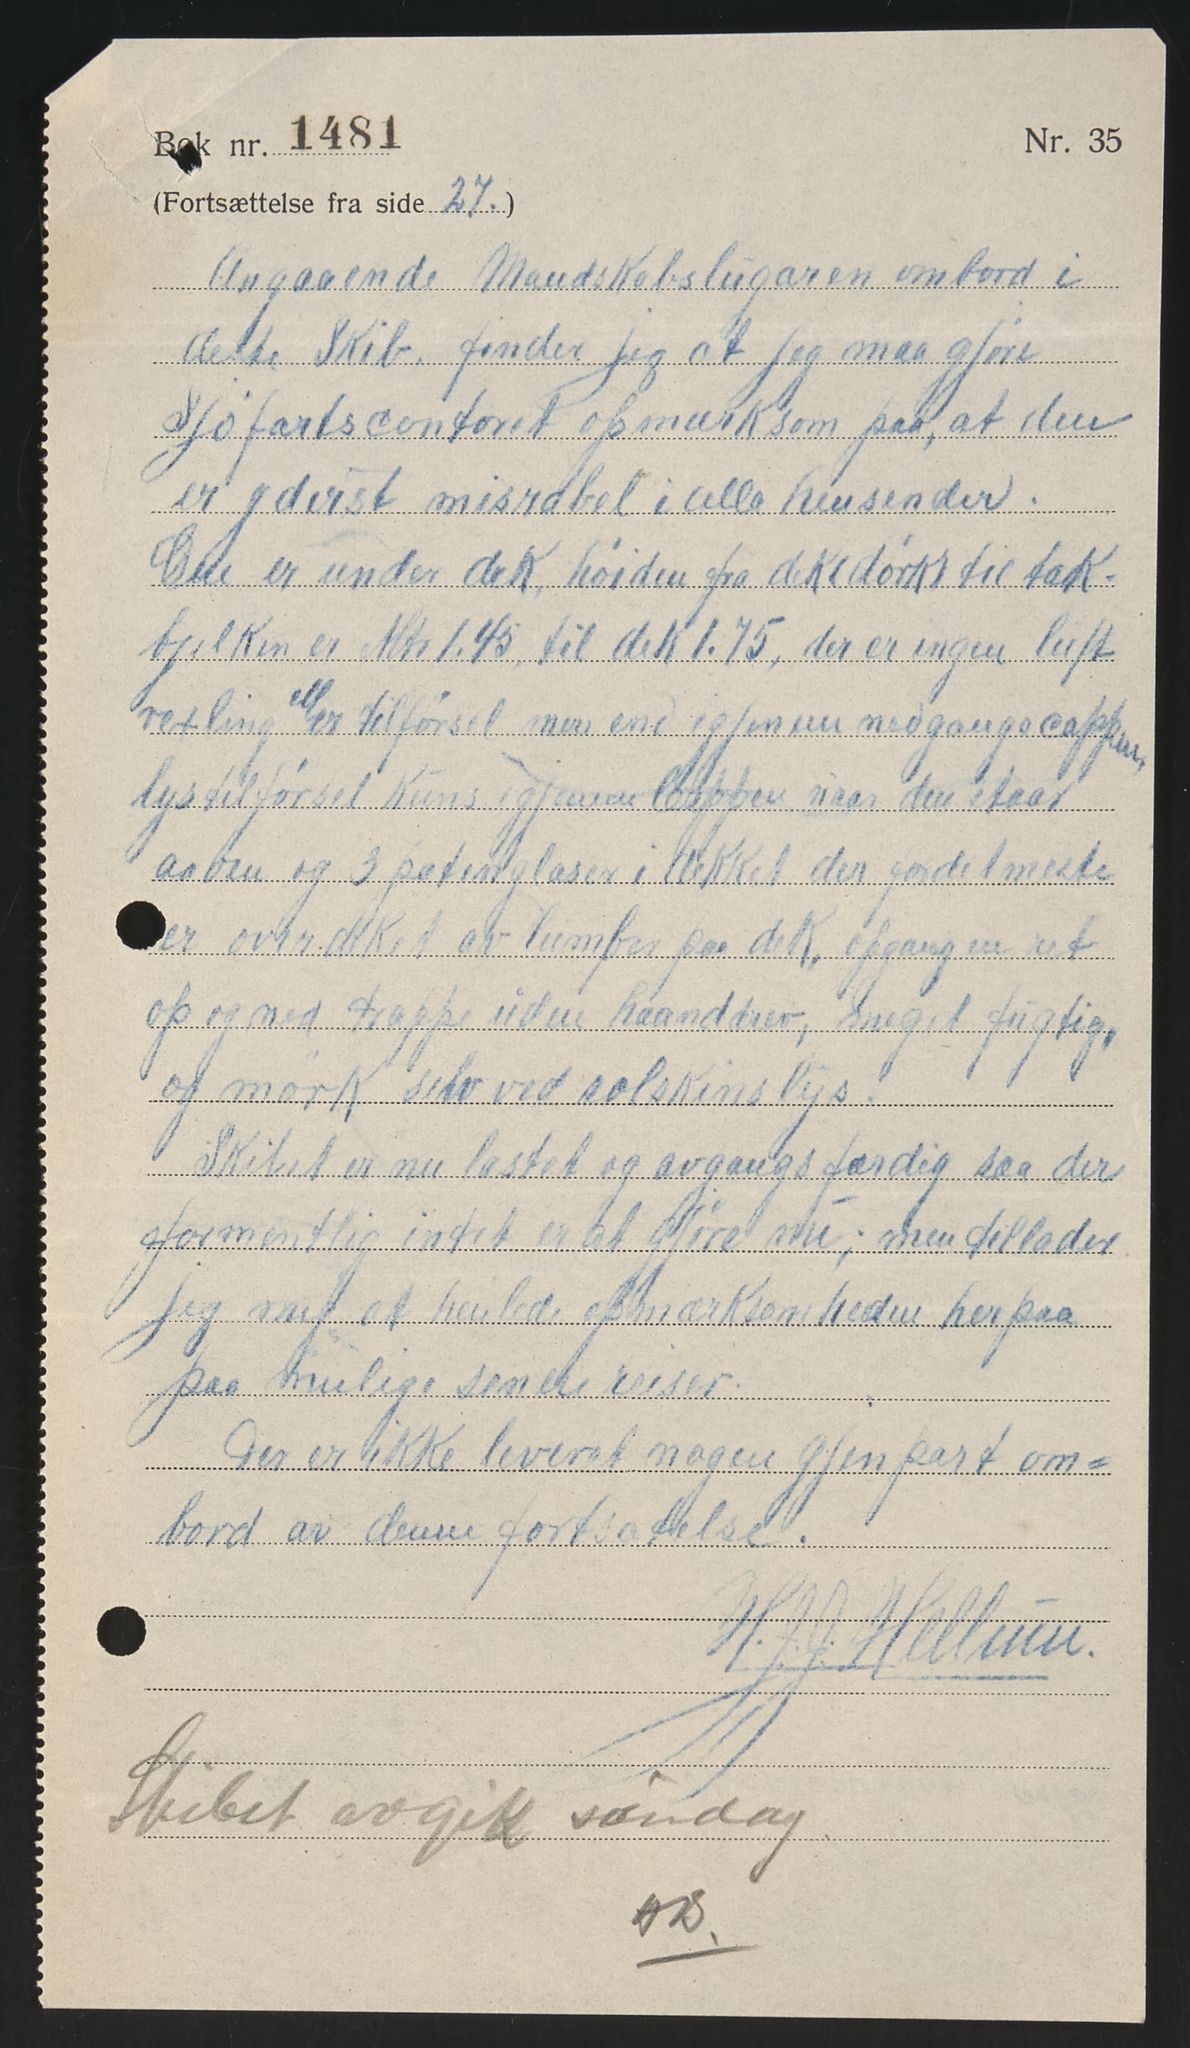 Bok nr. 1481
Nr. 35
(Fortsættelse fra side 27.)
Angaaende Mandskabslugaren ombord i
dette Skib. finder jeg at jeg maa gjöre
Sjöfartscontoret opmerksom paa, at den
er yderst misrabel i alla hensender.
Den er under dek, höiden fra deksdörk til tak-
bjelken er Mtr 1.45, til dek 1.75, der er ingen luft
vexling eller tilførsel men end igjennem nedgangscappen,
lystilførsel kuns igjennem Cappen naar den staar
aaben og 3 patentglaser i dekket der fordetmeste
er overdeket av tumber paa dek, opgangen ret
op og ned trappe uden haanddrev, meget fugtig,
og mörk selv ved solskinslys.
Skibet er nu lastet og avgangsfærdig saa der
formentlig intet er at gjöre nu; men tillader
jeg mej at henlede opmærksomheden herpaa
paa mulige senere reiser.
Der er ikke leveret nogen gjenpart om=
bord av denne fortsatelse.
H. J. J. Hellum.
Skibet avgik söndag